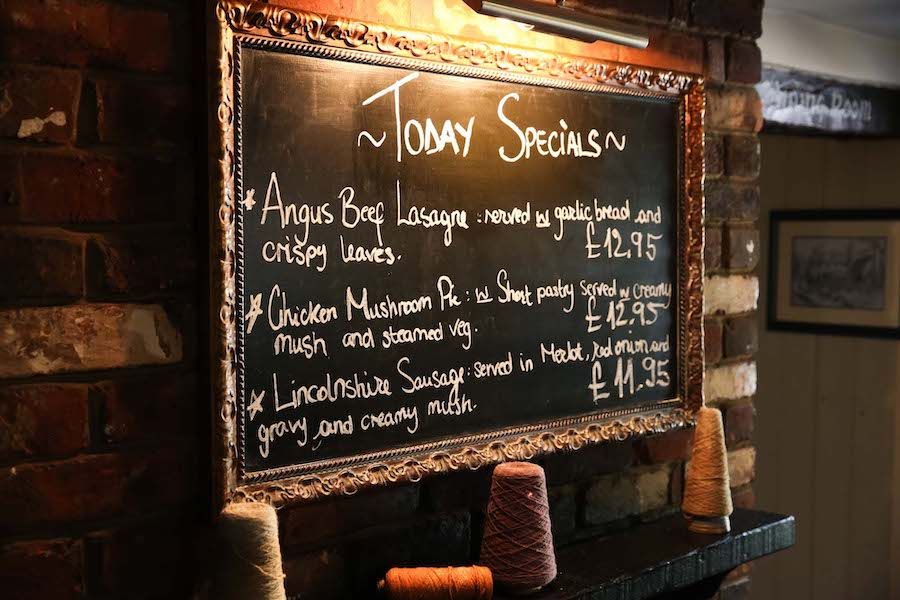 ~Today Specials~
* Angus Beef Lasagne: served w garlic bread and
crispy leaves. £12,95
* Chicken Mushroom Pie: w Short pastry served w creamy
mush and steamed veg. £12.95
* Lincolnshire Sausage: served in Merlot, red onion and
gravy and creamy mush. £11,95
Dining Room